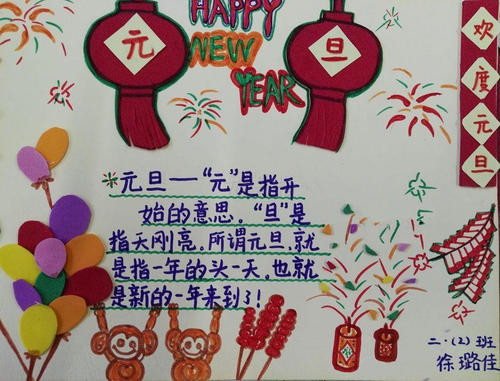 HAPPY
NEW
YEAR
元
旦
欢度元旦
*元旦——“元”是指开
始的意思。“旦”是
指天刚亮。所谓元旦,就
是指一年的头一天,也就
是新的一年来到了!
二·(2)班
徐璐佳